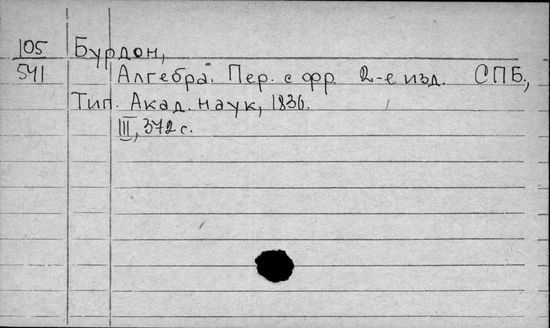 105 Бурдон,
541 Алгебра. Пер. с фр. 2-е изд. СПБ.,
Тип. Акад. наук, 1836.
III, 372 с.